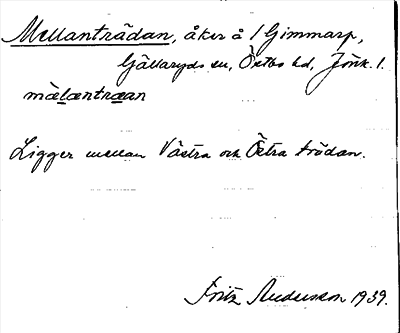 Mellanträdan, åker å 1 Gimmarp,
Gällaryds sn, Östbo hd, Jönk. l.
mèlæntræan
Ligger mellan Västra och Östra trädan.
Fritz Andersson 1939.